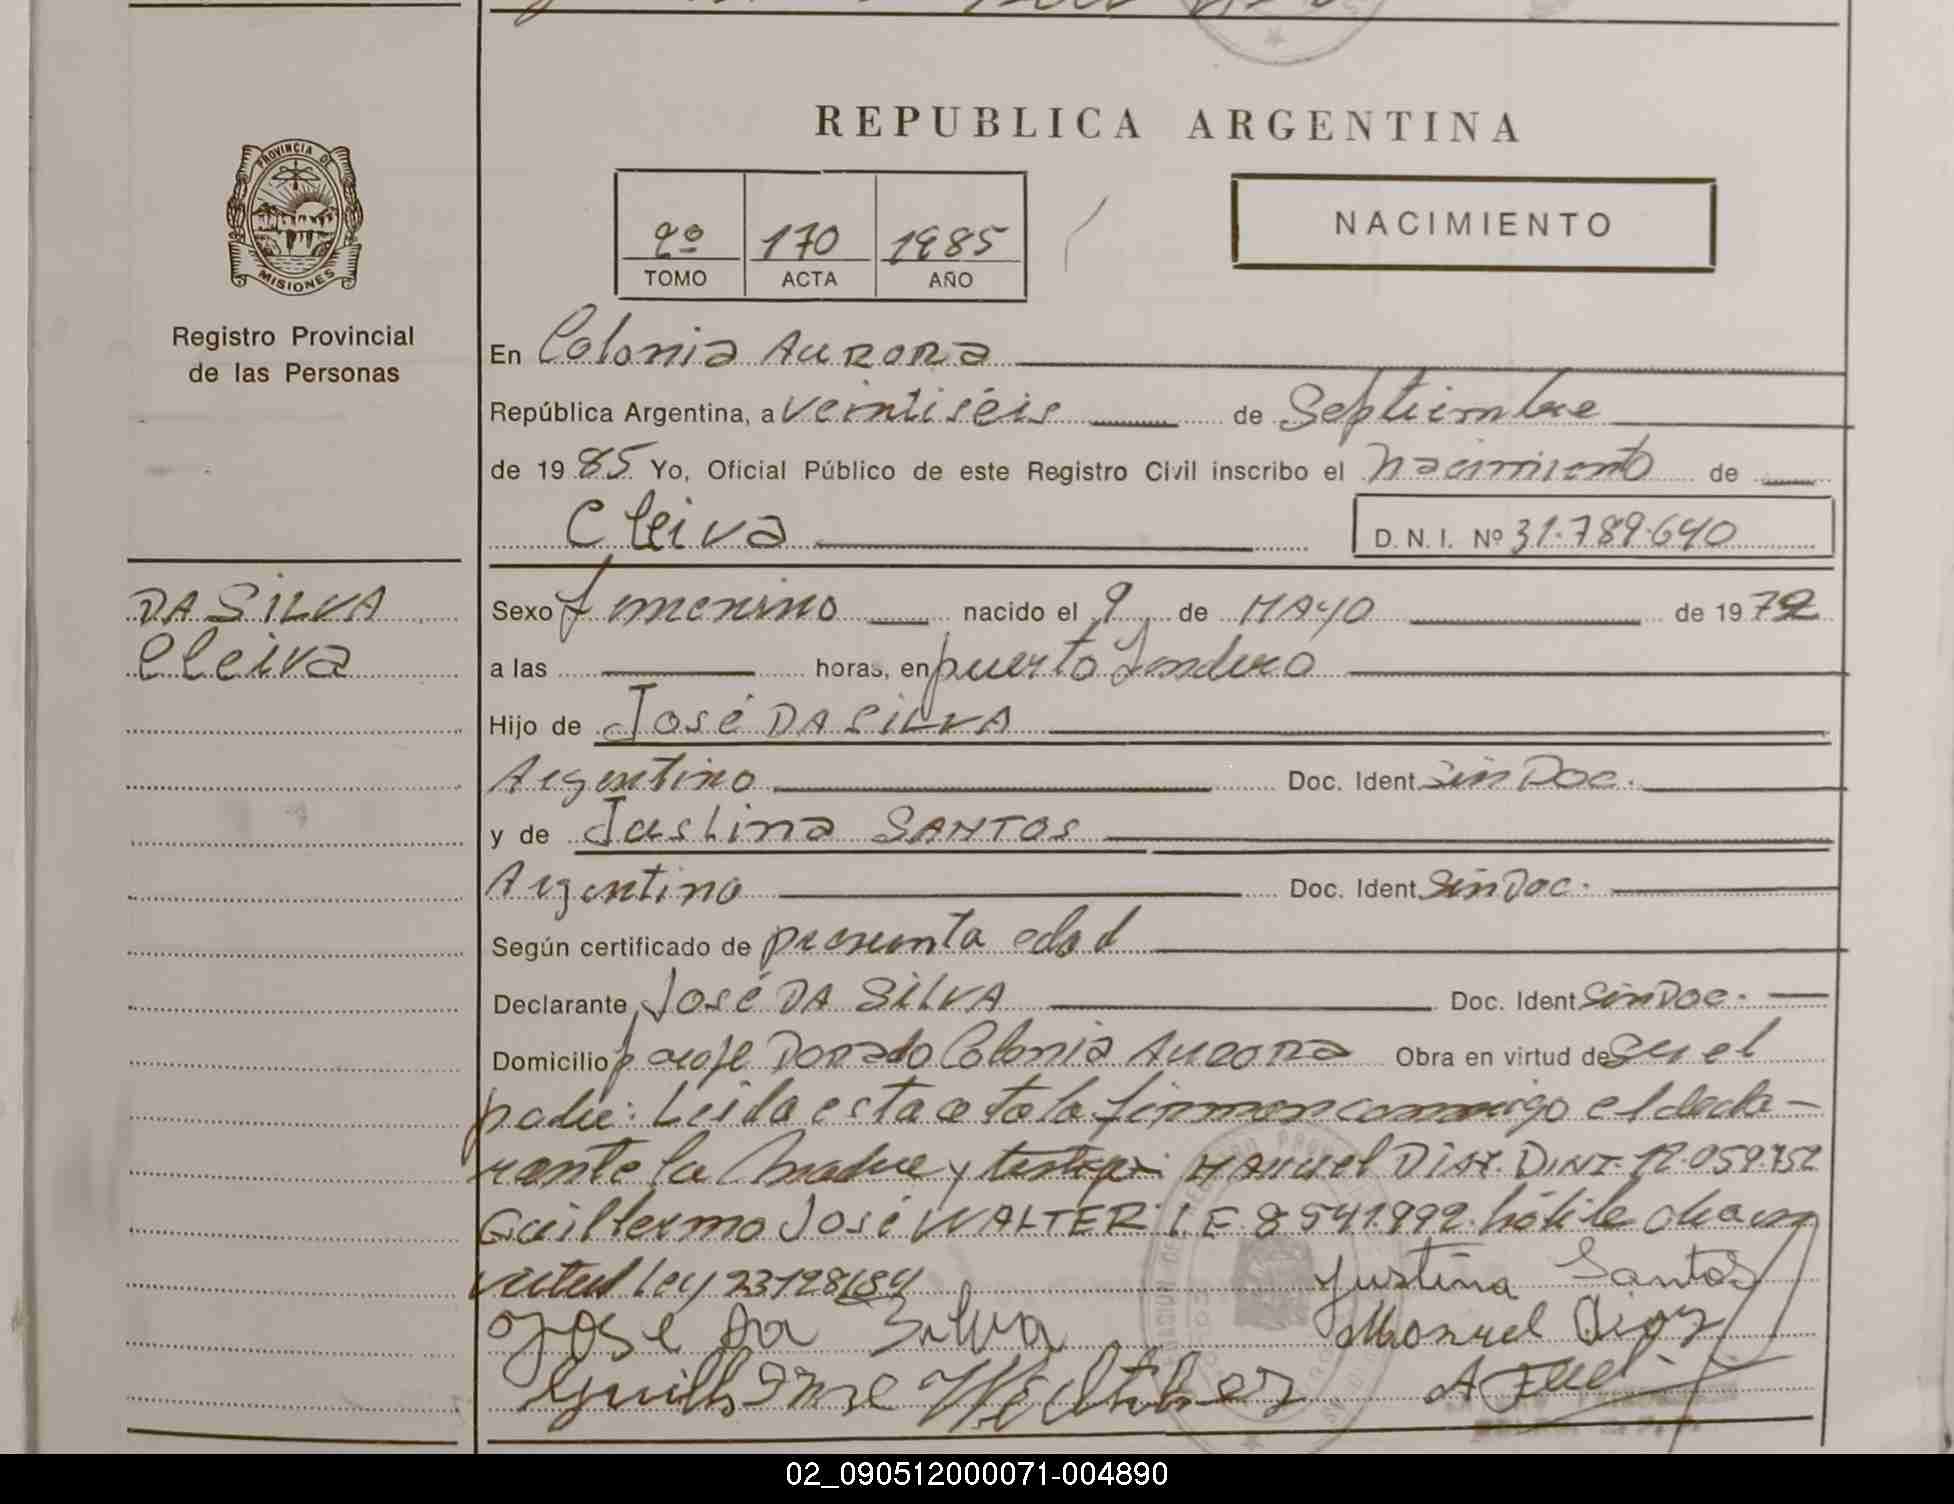 REPUBLICA ARGENTINA
PROVINCIA DE
MISIONES
Registro Provincial
de las Personas
2º 170 1985
TOMO ACTA AÑO
NACIMIENTO
En Colonia Aurora
República Argentina, a veintiséis de Septiembre
de 1985 Yo, Oficial Público de este Registro Civil inscribo el nacimiento de
Cleiva D.N.I. Nº 31.789.640
DA SILVA
Cleiva
Sexo femenino nacido el 9 de MAYO de 1972
a las horas, en puerto
Hijo de José DA SILVA
Argentino Doc. Ident. Sin Doc.
y de Justina SANTOS
Argentino Doc. Ident. Sin Doc.
Según certificado de presunta edad
Declarante José DA SILVA Doc. Ident. Sin Doc.
Domicilio Dorado Colonia Aurora Obra en virtud de Ser el
padre: Leida esta acta la firman conmigo el decla-
rante la Madre y testigos: Manuel DIAZ. D.N.I. 12.059.752
Guillermo José WALTER L.E. 8541.992. en
virtud Ley 23128/84
Justina Santos
José Da Silva Manuel Diaz
02_090512000071-004890